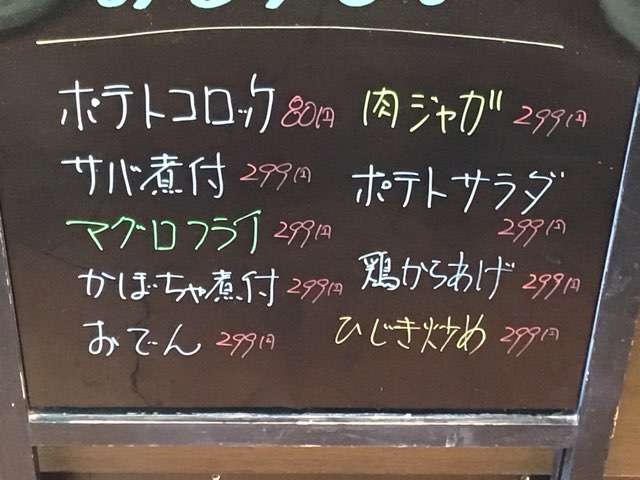 ポテトコロッケ 80円
サバ煮付 299円
マグロフライ 299円
かぼちゃ煮付 299円
おでん 299円
肉ジャガ 299円
ポテトサラダ
299円
鶏からあげ 299円
ひじき炒め 299円